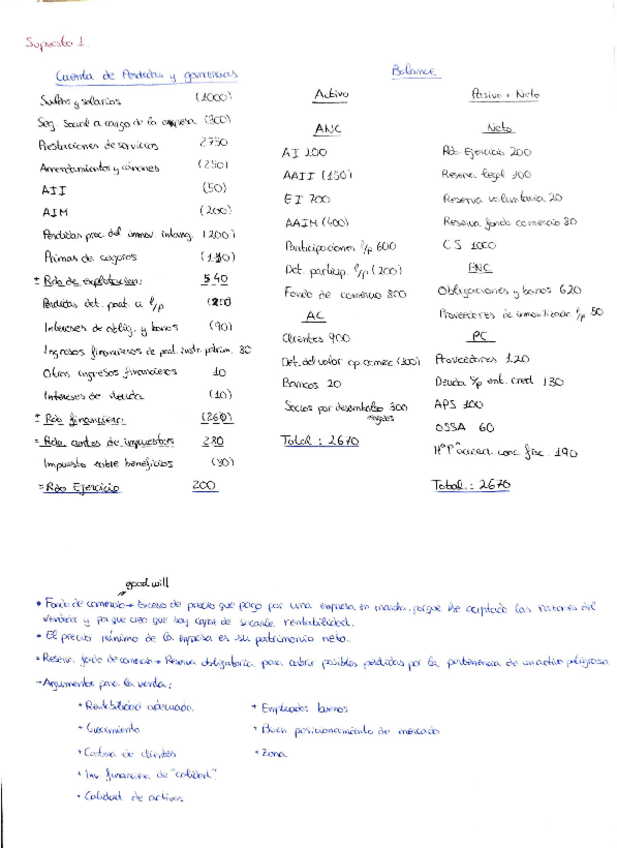 Supuesto 1.
Cuenta de Perdidas y ganancias
Sueldos y salarios (1000)
Seg. Social a cargo de la empresa (300)
Prestaciones de servicios 2750
Arrendamientos y cánones (250)
AII (50)
AIM (200)
Perdidas proc. del inmov. intang. (200)
Primas de seguros
± Rdo de explotacion: 540
Perdidas det. part. a l/p
Intereses de oblig. y bonos (90)
Ingresos financieros de part. instr. patrim. 80
Otros ingresos financieros 10
Intereses de deuda (10)
± Rdo financiero: (260)
= Rdo. antes de impuestos 280
Impuesto sobre beneficios
= Rdo Ejercicio 200
Balance
Activo
ANC
AI 100
AAII (150)
EI 700
AAIM (400)
Participaciones l/p 600
Det. particip. l/p (200)
Fondo de comercio 800
AC
Clientes 900
Det. del valor op. comerc (300)
Bancos 20
Socios por desembolso 300
exigidos
Total: 2670
Pasivo + Neto
Neto
Rdo. Ejercicio 200
Reserva legal 300
Reserva voluntaria 20
Reserva fondo comercio 80
CS 1000
PNC
Obligaciones y bonos 620
Proveedores de inmovilizado l/p 50
PC
Proveedores 120
Deuda c/p ent. cred 130
APS 100
OSSA 60
HªPª acreed. conc. fisc. 190
Total: 2670
good will
• Fondo de comercio → Exceso de precio que pago por una empresa en marcha, porque he aceptado las razones del
vendedor y porque creo que soy capaz de sacarle rentabilidad.
• El precio mínimo de la empresa es su patrimonio neto.
• Reserva fondo de comercio → Reserva obligatoria para cubrir posibles perdidas por la pertenencia de un activo peligroso
→ Argumentos para la venta:
• Rentabilidad adecuada
• Crecimiento
• Cartera de clientes
• Inv. financiera de "calidad".
• Calidad de activos
• Empleados buenos
• Buen posicionamiento de mercado
• Zona